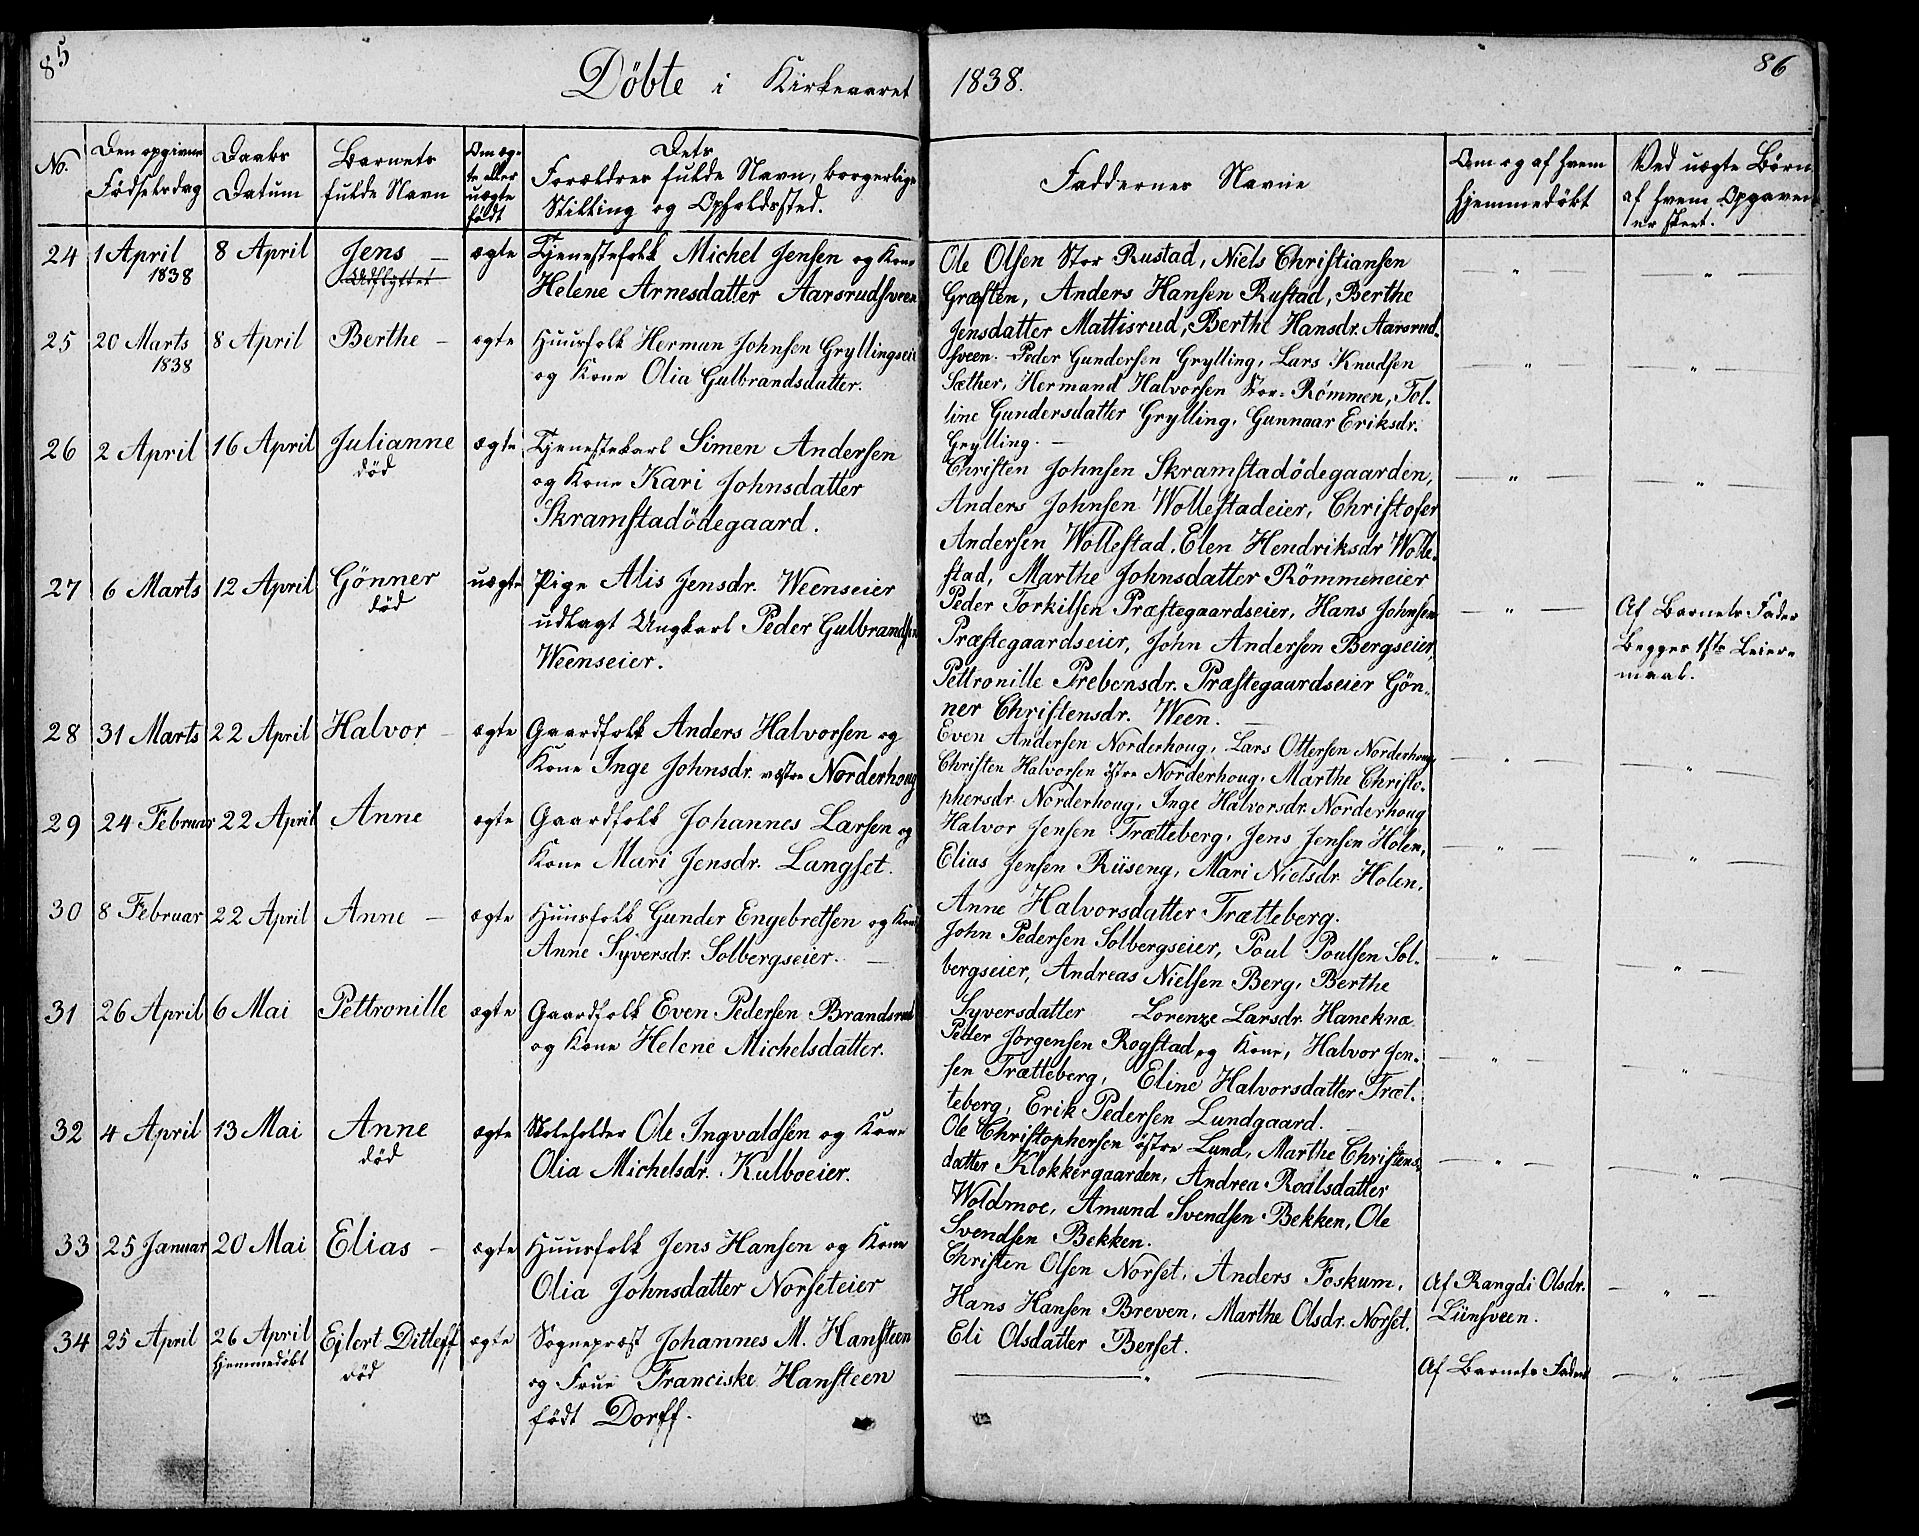 85
Döbte i Kirkeaaret
No.
Den opgivne Födselsdag
Daabs Datum
Barnets fulde Navn
Om ægte eller uægte födt
Dets Forældres fulde Navn, borgerlige Stilling og Opholdssted.
24 1 April 1838 8 April Jens – Udflyttet ægte Tjenestefolk Michel Jensen og Kone
Helene Arnesdatter Aarsrudsveen
25 20 Marts 1838 8 April Berthe – ægte Huusfolk Herman Johnsen Gryllingseie
og Kone Olia Gulbrandsdatter.
26 2 April 16 April Julianne død ægte Tjenestekarl Simen Andersen
og Kone Kari Johnsdatter
Skramstadödegaard.
27 6 Marts 12 April Gönner död uægte Pige Alis Jensdr. Weenseier
udlagt Ungkarl Peder Gulbrandsen
Weenseier.
28 31 Marts 22 April Halvor – ægte Gaardfolk Anders Halvorsen og
Kone Inge Johnsdr. vestre Norderhoug
29 24 Februar 22 April Anne ægte Gaardfolk Johannes Larsen og
Kone Mari Jensdr. Langset.
30 8 Februar 22 April Anne – ægte Huusfolk Gunder Engebretsen og Kone
Anne Syversdr. Solbergseier. –
31 26 April 6 Mai Pettronille ægte Gaardfolk Even Pedersen Brandsrud
og Kone Helene Michelsdatter.
32 4 April 13 Mai Anne död ægte Skoleholder Ole Ingvaldsen og Kone
Olia Michelsdr. Kulboeier.
33 25 Januar 20 Mai Elias – ægte Huusfolk Jens Hansen og Kone
Olia Johnsdatter Norseteier
34 25 April 26 April hjemmedøbt Ejlert Ditleff död ægte Sognepræst Johannes M. Hansteen
og Frue Franciske Hansteen
født Dorff.
1838.
86
Faddernes Navne
Om og af hvem hjemmedöbt
Ved uægte Börn af hvem Opgaven er skeet.
Ole Olsen Stor Rustad, Niels Christiansen
Græsten, Anders Hansen Rustad, Berthe
Jensdatter Mattisrud, Berthe Hansdr. Aarsrud-
sveen. – Peder Gundersen Grylling, Lars Knudsen
Sæther, Hermand Halvorsen Stor-Römmen, Tol-
line Gundersdatter Grylling, Gunnaar Eriksdr.
Grylling. –
Christen Johnsen Skramstadödegaarden,
Anders Johnsen Wollestadeier, Christofer
Andersen Wollestad, Elen Hendriksdr Wolle-
stad, Marthe Johnsdatter Römmeneier
Peder Torkilsen Præstegaardseier, Hans Johnsen
Præstegaardseier, John Andersen Bergseier,
Pettronille Prebensdr. Præstegaardseier Gön-
ner Christensdr. Ween. –
Af Barnets Fader
Begges 1ste Leier-
maal.
Even Andersen Norderhoug, Lars Ottersen Norderhoug,
Christen Halvorsen östre Norderhoug, Marthe Christo-
phersdr Norderhoug, Inge Halvorsdr. Norderhoug
Halvor Jensen Trætteberg, Jens Jensen Holen,
Elias Jensen Rüseng, Mari Nielsdr. Holen,
Anne Halvorsdatter Trætteberg.
John Pedersen Solbergseier, Poul Poulsen Sol-
bergseier, Andreas Nielsen Berg, Berthe
Syversdatter Lorenze Larsdr. Hanekna
Peder Jörgensen Rogstad og Kone, Halvor Jen-
sen Trætteberg, Eline Halvorsdatter Træt-
teberg, Erik Pedersen Lundgaard. –
Ole Christophersen östre Lund, Marthe Christens-
datter Klokkergaarden, Andrea Roalsdatter
Woldmoe, Amund Svendsen Bekken, Ole
Svendsen Bekken.
Christen Olsen Norset, Anders Foskum,
Hans Hansen Breven, Marthe Olsdr. Norset,
Eli Olsdatter Berset.
Af Rangdi Olsdr.
Lünsveen.
Af Barnets Fader